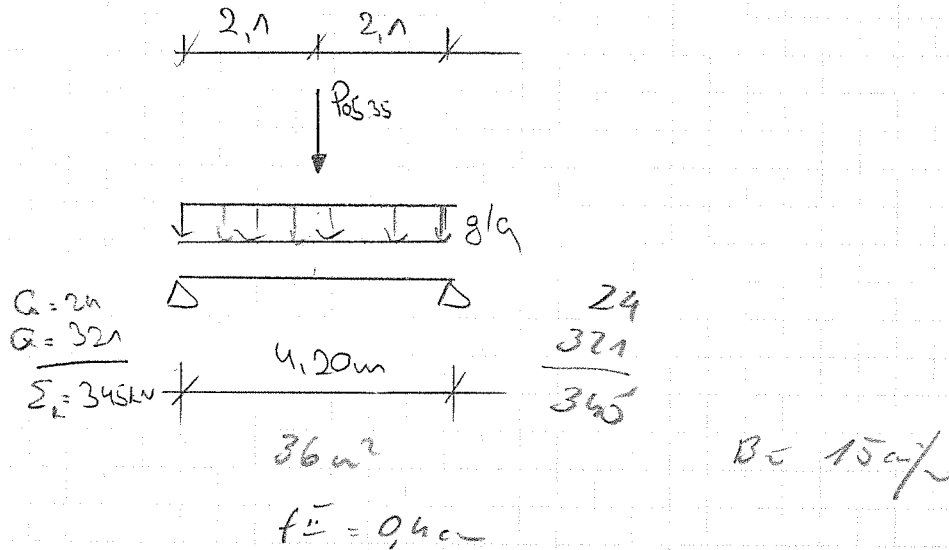 2,1 2,1
Pos 35
g/q
G = 24
Q = 321
Σk = 345kN
4,20m
24
321
345
36 m²
f II = 0,4 cm